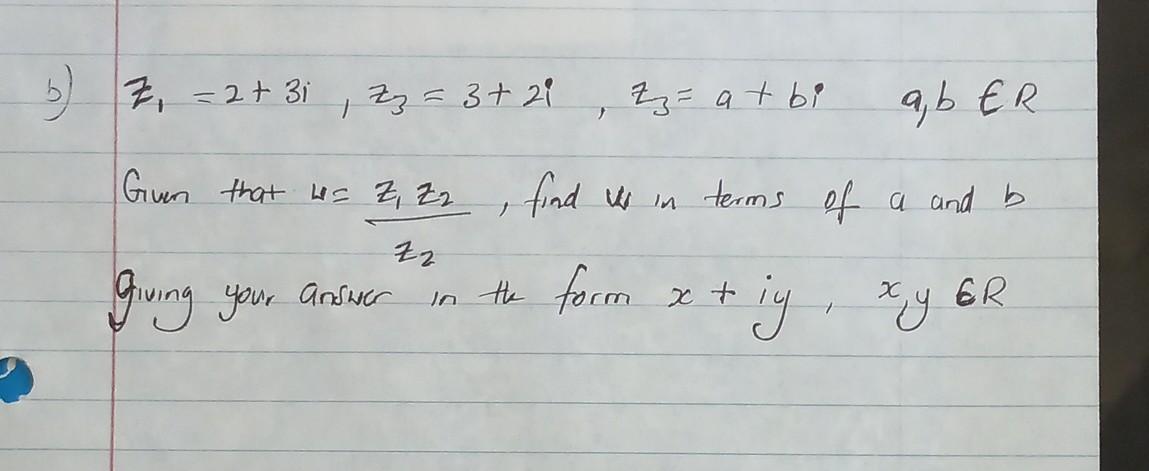 b) z₁ = 2 + 3i , z₃ = 3 + 2i , z₃ = a + bi a,b ∈ R
Given that w = z₁ z₂ / z₂ , find w in terms of a and b
giving your answer in the form x + iy , x,y ∈ R